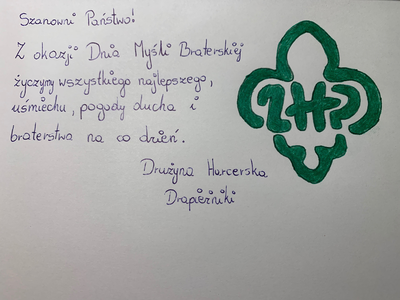 Szanowni Państwo!
Z okazji Dnia Myśli Braterskiej
życzymy wszystkiego najlepszego,
uśmiechu, pogody ducha i
braterstwa na co dzień.
Drużyna Harcerska
Drapieżniki
ZHP